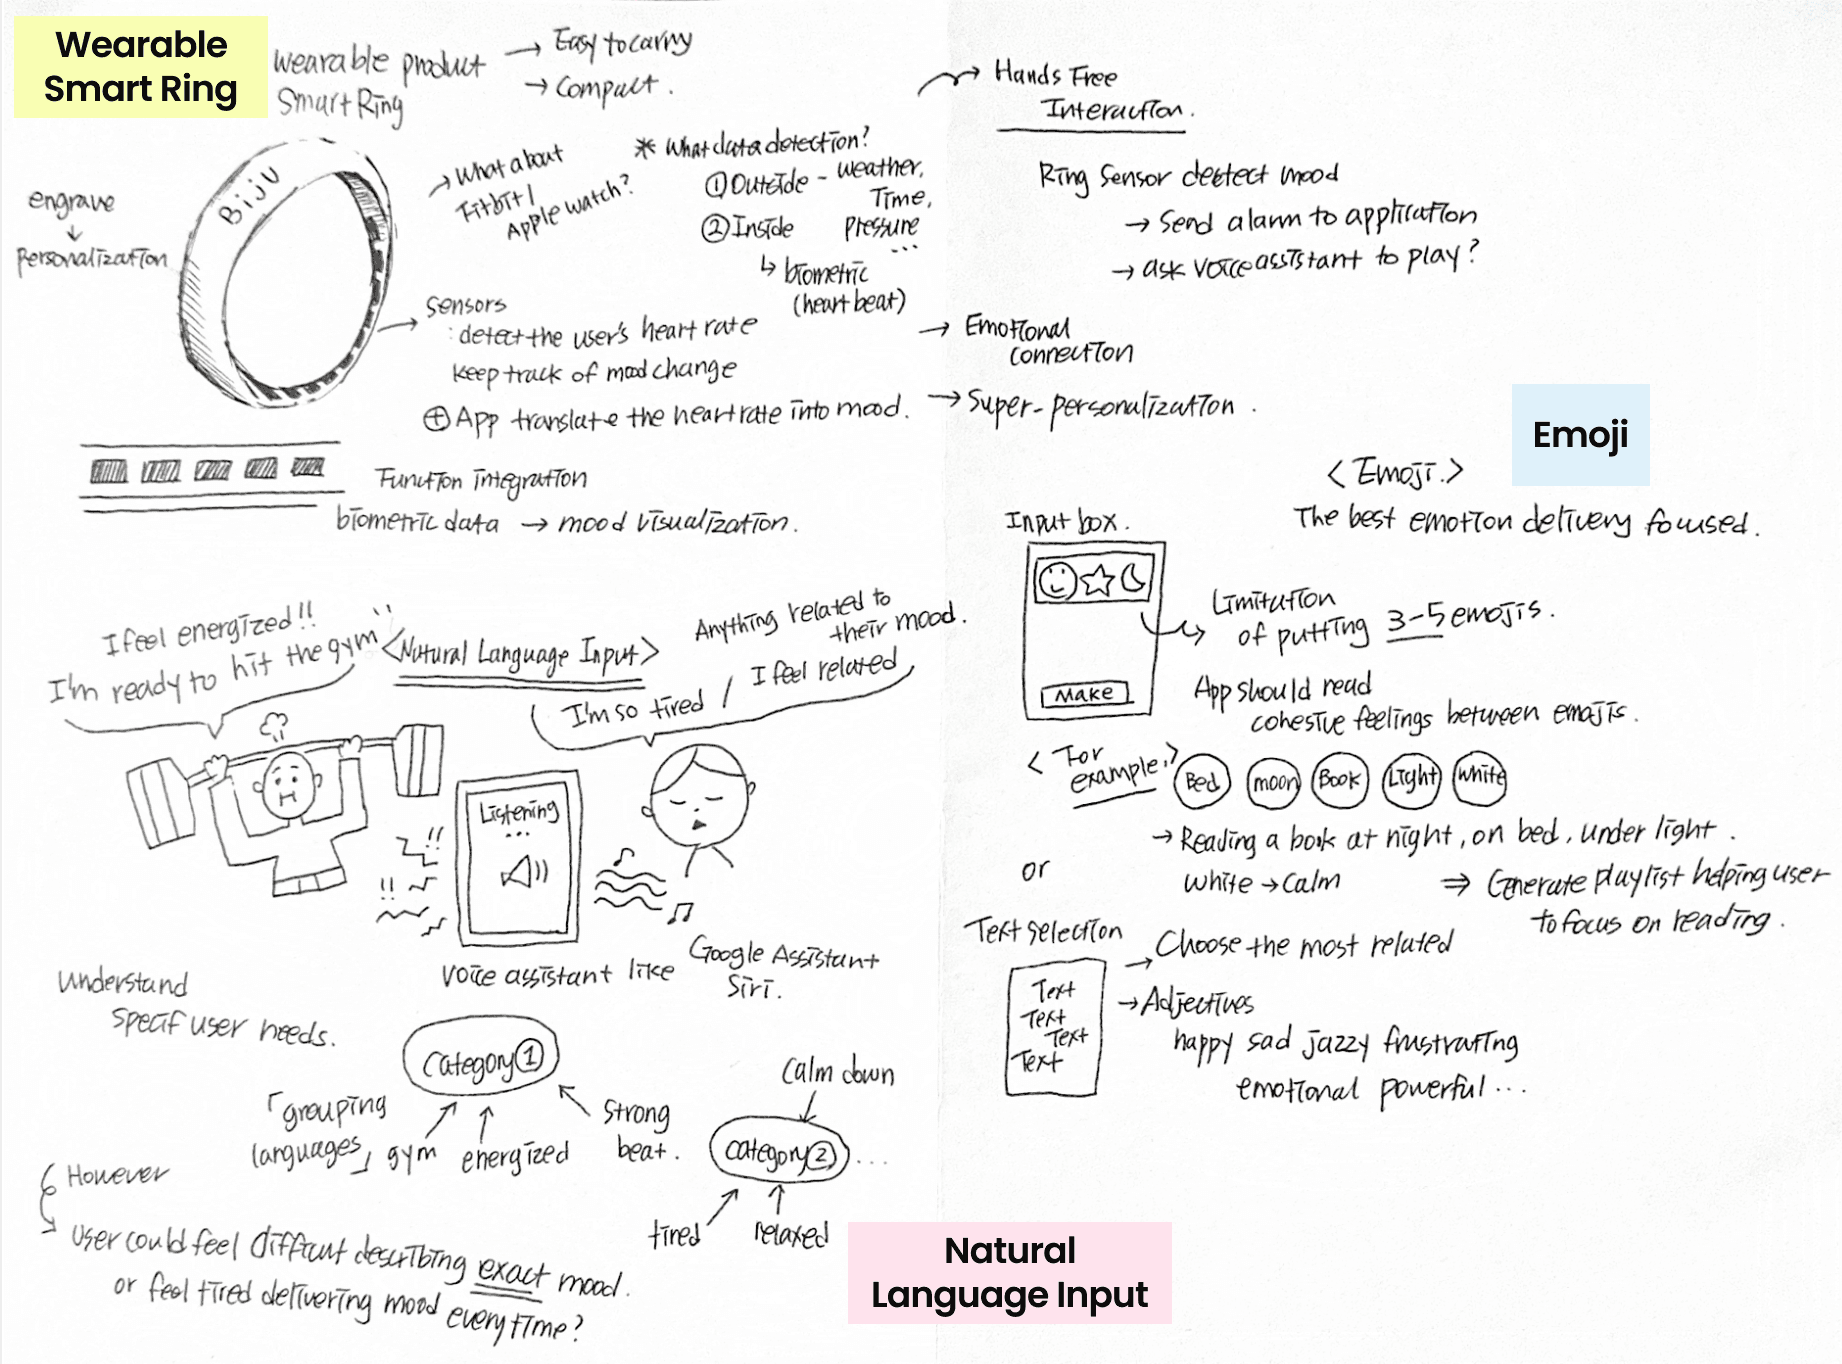 Wearable
Smart Ring
wearable product
Smart Ring
→ Easy to carry
→ Compact.
engrave
↓
personalization
BIJU
→ What about
Fitbit /
Apple watch?
* What data detection?
① Outside - weather,
Time,
pressure
...
② Inside
↳ biometric
(heart beat)
→ Sensors
: detect the user's heart rate
keep track of mood change
⊕ App translate the heartrate into mood.
Function integration
biometric data → mood visualization.
→ Hands Free
Interaction.
Ring Sensor detect mood
→ Send alarm to application
→ ask voice assistant to play?
→ Emotional
connection
→ Super-personalization.
Emoji
<Emoji.>
The best emotion delivery focused.
Input box.
Make
Limitation
of putting 3-5 emojis.
App should read
cohesive feelings between emojis.
<For
example,>
Bed
moon
Book
Light
white
→ Reading a book at night, on bed, under light.
white → calm
⇒ Generate playlist helping user
to focus on reading.
or
Text selection
Text
Text
Text
Text
→ Choose the most related
→ Adjectives
happy sad jazzy frustrating
emotional powerful ...
I feel energized!!
I'm ready to hit the gym
<Natural Language Input>
Anything related to
their mood.
I'm so tired / I feel related
Listening
...
!!
!!
voice assistant like Google Assistant
Siri.
Understand
specif user needs.
Category ①
「grouping
languages」
gym
energized
strong
beat.
calm down
category ② ...
tired
relaxed
However
user could feel difficult describing exact mood.
or feel tired delivering mood everytime?
Natural
Language Input